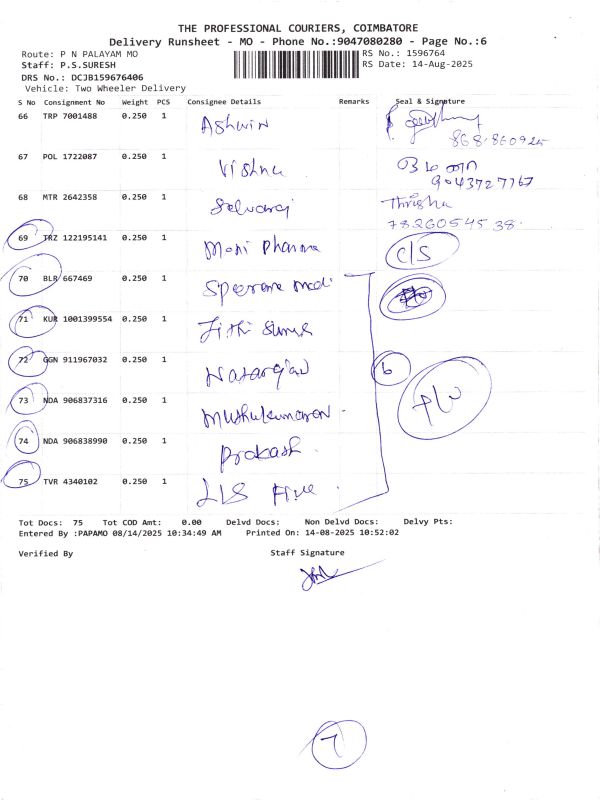 THE PROFESSIONAL COURIERS, COIMBATORE
Delivery Runsheet - MO - Phone No.:9047080280 - Page No.:6
Route: P N PALAYAM MO RS No.: 1596764
Staff: P.S.SURESH RS Date: 14-Aug-2025
DRS No.: DCJB159676406
Vehicle: Two Wheeler Delivery
S No Consignment No Weight PCS Consignee Details Remarks Seal & Signature
66 TRP 7001488 0.250 1 Ashwin
868.860925
67 POL 1722087 0.250 1 Vishnu
9043727767
68 MTR 2642358 0.250 1 Selvaraj Thrisha
7826054538
69 TRZ 122195141 0.250 1 Moni Pharma C/S
70 BLR 667469 0.250 1
71 KUR 1001399554 0.250 1
72 GGN 911967032 0.250 1 6
73 NDA 906837316 0.250 1 Muthukumaran
74 NDA 906838990 0.250 1 Prakash
75 TVR 4340102 0.250 1
Tot Docs: 75 Tot COD Amt: 0.00 Delvd Docs: Non Delvd Docs: Delvy Pts:
Entered By :PAPAMO 08/14/2025 10:34:49 AM Printed On: 14-08-2025 10:52:02
Verified By Staff Signature
7